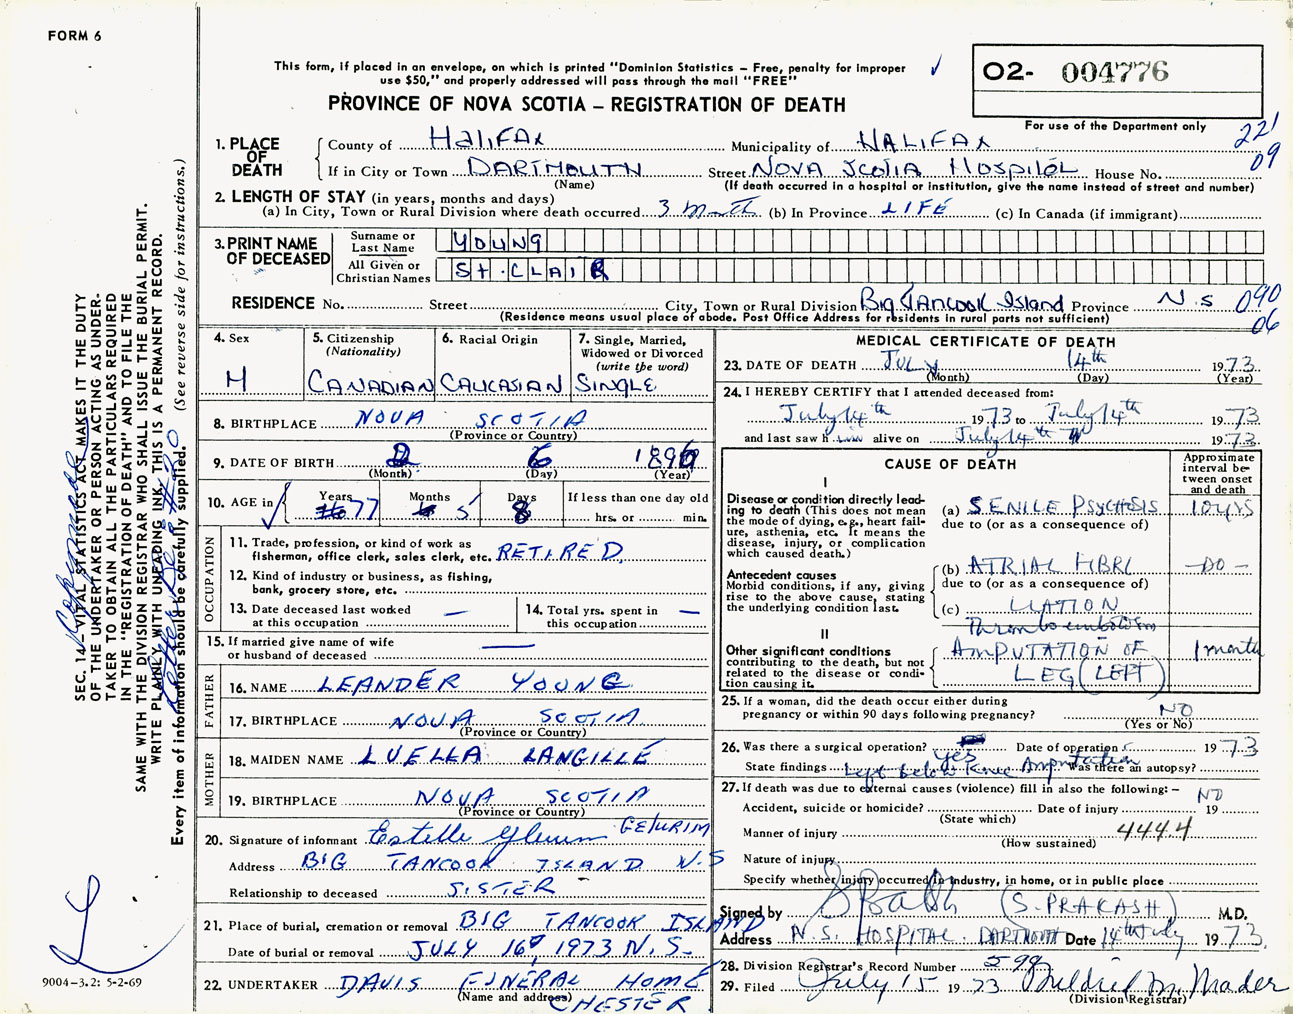 FORM 6
This form, if placed in an envelope, on which is printed "Dominion Statistics – Free, penalty for improper
use $50," and properly addressed will pass through the mail "FREE"
O2- 004776
PROVINCE OF NOVA SCOTIA – REGISTRATION OF DEATH
For use of the Department only
221
09
1. PLACE OF DEATH
County of HALIFAX Municipality of HALIFAX
If in City or Town DARTMOUTH Street NOVA SCOTIA HOSPITOL House No.
(Name) (If death occurred in a hospital or institution, give the name instead of street and number)
2. LENGTH OF STAY (in years, months and days)
(a) In City, Town or Rural Division where death occurred 3 (b) In Province LIFE (c) In Canada (if immigrant)
3. PRINT NAME OF DECEASED
Surname or Last Name YOUNG
All Given or Christian Names ST. CLAIR
RESIDENCE No. Street City, Town or Rural Division Big Tancook Island Province N.S 090
06
(Residence means usual place of abode. Post Office Address for residents in rural parts not sufficient)
4. Sex M
5. Citizenship (Nationality) CANADIAN
6. Racial Origin CAUCASIAN
7. Single, Married, Widowed or Divorced (write the word) SINGLE
8. BIRTHPLACE NOVA SCOTIA
(Province or Country)
9. DATE OF BIRTH 2 6 1896
(Month) (Day) (Year)
10. AGE in Years 77 Months 5 Days 8 If less than one day old
hrs. or min.
OCCUPATION
11. Trade, profession, or kind of work as
fisherman, office clerk, sales clerk, etc. RETIRED
12. Kind of industry or business, as fishing,
bank, grocery store, etc.
13. Date deceased last worked
at this occupation —
14. Total yrs. spent in
this occupation —
15. If married give name of wife
or husband of deceased —
FATHER
16. NAME LEANDER YOUNG
17. BIRTHPLACE NOVA SCOTIA
(Province or Country)
MOTHER
18. MAIDEN NAME LUELLA LANGILLE
19. BIRTHPLACE NOVA SCOTIA
(Province or Country)
20. Signature of informant Estelle
Address BIG TANCOOK ISLAND N.S
Relationship to deceased SISTER
21. Place of burial, cremation or removal BIG TANCOOK ISLAND
Date of burial or removal JULY 16, 1973 N.S.
22. UNDERTAKER DAVIS FUNERAL HOME
(Name and address) CHESTER
MEDICAL CERTIFICATE OF DEATH
23. DATE OF DEATH JULY 14th 1973
(Month) (Day) (Year)
24. I HEREBY CERTIFY that I attended deceased from:
July 14th 1973 to July 14th 1973
and last saw h im alive on July 14th 1973
CAUSE OF DEATH
Approximate interval between onset and death
I
Disease or condition directly lead-
ing to death (This does not mean
the mode of dying, e.g., heart fail-
ure, asthenia, etc. It means the
disease, injury, or complication
which caused death.)
(a) SENILE PSYCHOSIS 10 yrs
due to (or as a consequence of)
Antecedent causes
Morbid conditions, if any, giving
rise to the above cause, stating
the underlying condition last.
(b) ATRIAL FIBRI -DO-
due to (or as a consequence of)
(c) LLATION
Thromboembolism
II
Other significant conditions
contributing to the death, but not
related to the disease or condi-
tion causing it.
AMPUTATION OF 1 month
LEG (LEFT)
25. If a woman, did the death occur either during
pregnancy or within 90 days following pregnancy? NO
(Yes or No)
26. Was there a surgical operation? yes Date of operation 5 1973
State findings Left below Knee Amputation Was there an autopsy?
NO
27. If death was due to external causes (violence) fill in also the following: –
Accident, suicide or homicide? Date of injury 19
(State which)
Manner of injury 444.4
(How sustained)
Nature of injury
Specify whether injury occurred in industry, in home, or in public place
Signed by (S. PRAKASH) M.D.
Address N.S. HOSPITAL. DARTMOUTH Date 14th July 1973.
28. Division Registrar's Record Number 599
29. Filed July 15 1973 Mildred M. Mader
(Division Registrar)
SEC. 14 – VITAL STATISTICS ACT MAKES IT THE DUTY
OF THE UNDERTAKER OR PERSON ACTING AS UNDER-
TAKER TO OBTAIN ALL THE PARTICULARS REQUIRED
IN THE "REGISTRATION OF DEATH" AND TO FILE THE
SAME WITH THE DIVISION REGISTRAR WHO SHALL ISSUE THE BURIAL PERMIT.
WRITE PLAINLY WITH UNFADING INK, THIS IS A PERMANENT RECORD.
Every item of information should be carefully supplied. (See reverse side for instructions.)
9004–3.2: 5-2-69